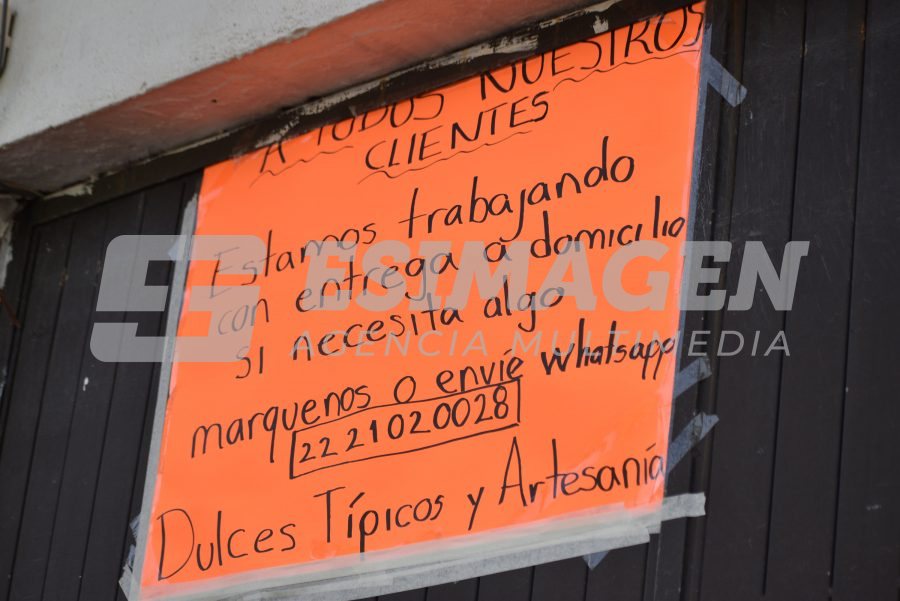 A TODOS NUESTROS
CLIENTES
Estamos trabajando
con entrega a domicilio
si necesita algo
marquenos o envíe whatsapp
22 21020028
Dulces Típicos y Artesanía
ESIMAGEN
AGENCIA MULTIMEDIA